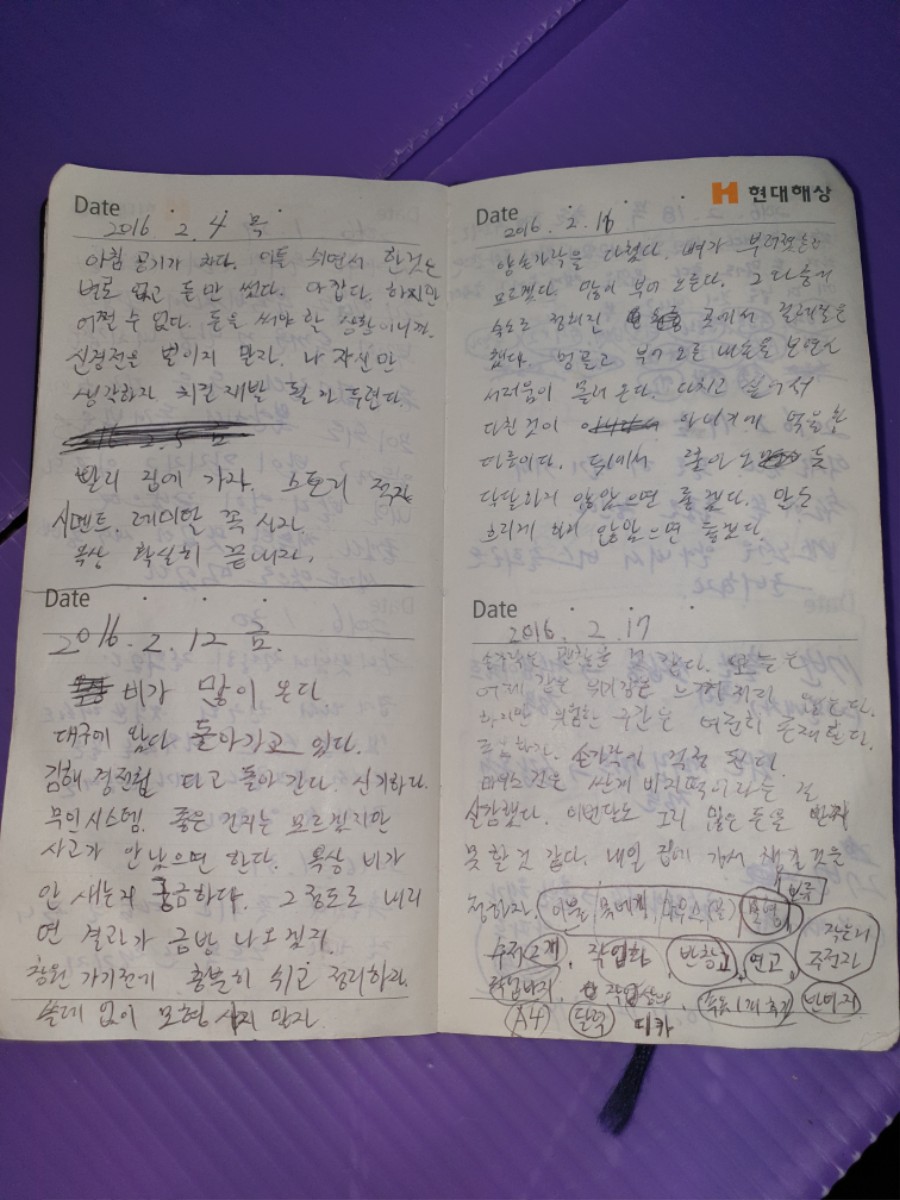 Date
2016. 2. 4 목
아침 공기가 차다. 이틀 쉬면서 한것은
별로 없고 돈만 썼다. 아깝다. 하지만
어쩔 수 없다. 돈을 써야 할 상황이니까.
신경전을 벌이지 말자. 나 자신만
생각하자 치킨 제발
빨리 집에 가자. 스토리 적자
시멘트. 레미탈 꼭 사자
옥상 확실히 끝내자.
Date
2016. 2. 12 금.
비가 많이 온다
대구에 왔다 돌아가고 있다.
김해 경전철 타고 돌아간다. 신기하다.
무인시스템. 좋은 건지는 모르겠지만
사고가 안났으면 한다. 옥상 비가
안 새는지 궁금하다. 그 정도로 내리
면 결과가 금방 나오겠지.
창원 가기전에 충분히 쉬고 정리하자.
쓸데 없이 모형 사지 말자.
H 현대해상
Date
2016. 2. 16
양손가락을 다쳤다. 뼈가 부러졌는지
모르겠다. 많이 부어 오른다. 그 다음
숙소로 정해진 곳에서
했다. 멍들고 부어 오른 내 손을 보면서
서러움이 몰려 온다. 다치고 싶어서
다친것이
닥달하지 않았으면 좋겠다. 말도
흐리게 하지 않았으면 좋겠다.
Date
2016. 2. 17
손가락은 괜찮은 것 같다. 오늘은
어제 같은 위기감은 느껴지지 않는다.
하지만 위험한 구간은 여전히 존재한다.
손가락이 걱정 된다.
싼게 비지떡이라는 걸
실감했다. 이번달도 그리 많은 돈을 받지
못 할 것 같다. 내일 집에 가서 챙길 것은
보류
정하자. 이불, 마우스
수저2개, 작업화, 반창고, 연고,
작업바지,
A4 달력 디카